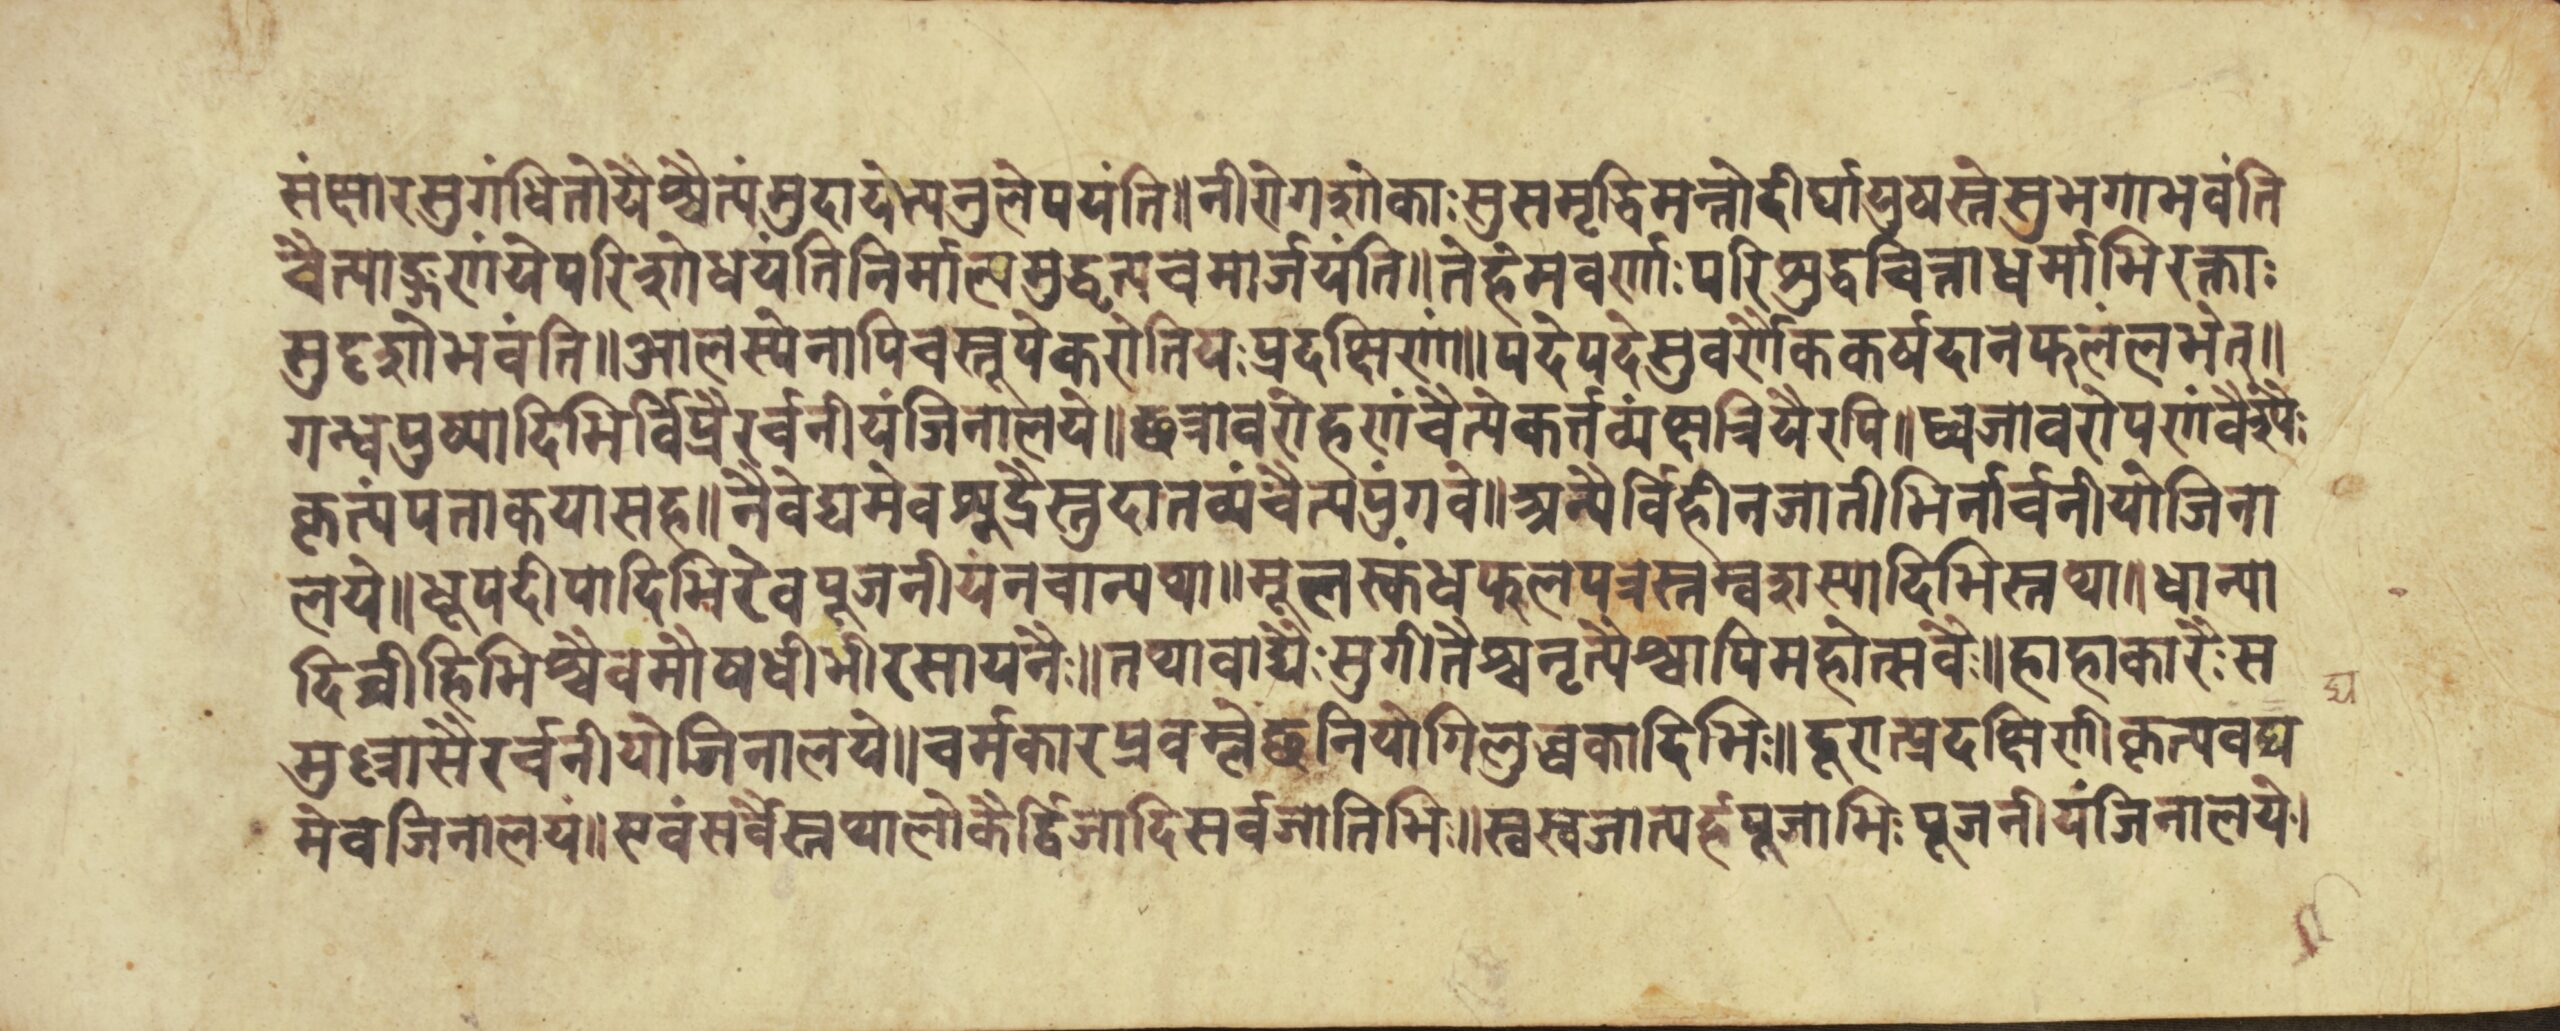 संक्षारसुगंधितोयैश्चैत्यंमुदायेत्यनुलेपयंति॥नीरोगशोकाःसुसमृद्धिमन्तोदीर्घायुषस्तेसुभगाभवंति
चैत्याङ्गणंयेपरिशोधयंतिनिर्माल्यमुद्धृत्यचमार्जयंति॥तेहंमवर्णाःपरिशुद्धचित्ताधर्माभिरक्ताः
सुदृशोभवंति॥आलस्येनापिचस्तूपेकरोतियःप्रदक्षिणं॥पदेपदेसुवर्णैककर्षदानफलंलभेत्॥
गन्धपुष्पादिभिर्विप्रैरर्चनीयंजिनालये॥छत्रावरोहणंचैत्येकर्त्तव्यंक्षत्रियैरपि॥ध्वजावरोपणंवैश्यैः
कृत्यंपताकयासह॥नैवेद्यमेवशूद्रैस्तुदातव्यंचैत्यपुंगवे॥अन्यैर्विहीनजातीभिर्नार्चनीयोजिना
लये॥धूपदीपादिभिरेवपूजनीयंनचान्यथा॥मूलस्कंधफलपत्रस्तम्बशस्यादिभिस्तथा॥धान्या
दिव्रीहिभिश्चैवमौषधीभीरसायनैः॥तथावाद्यैःसुगीतैश्चनृत्यैश्चापिमहोत्सवैः॥हाहाकारैःस
मुध्रासैरर्चनीयोजिनालये॥चर्मकारप्रवम्लेछनियोगिलुब्धकादिभिः॥दूरात्प्रदक्षिणीकृत्यवद्य
द्य
मेवजिनालयं॥एवंसर्वैस्तथालोकैर्द्विजादिसर्वजातिभिः॥स्वस्वजात्यर्हपूजाभिःपूजनीयंजिनालये।